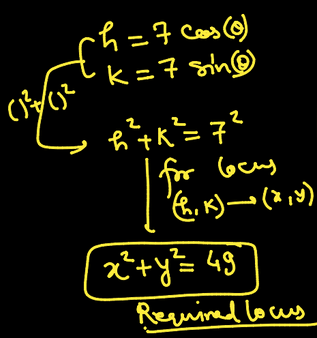 h = 7 cos(θ)
k = 7 sin(θ)
()²+()²
h²+k² = 7²
for locus
(h,k)→(x,y)
x²+y² = 49
Required locus